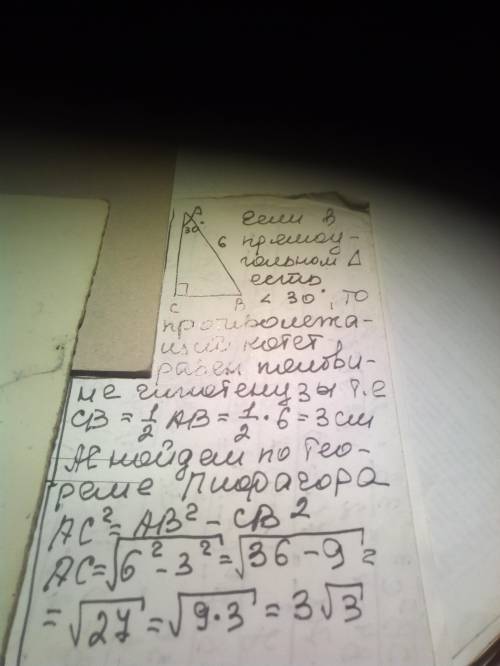 A
30°
6
C
B
Если в
прямоу-
гольном Δ
есть
∠ 30°, то
противолежа-
щий катет
равен полови-
не гипотенузы т.е
CB = 1/2 AB = 1/2 · 6 = 3 см
АС найдем по тео-
реме Пифагора
AC² = AB² - CB²
AC = √(6² - 3²) = √(36 - 9) =
= √27 = √(9·3) = 3√3